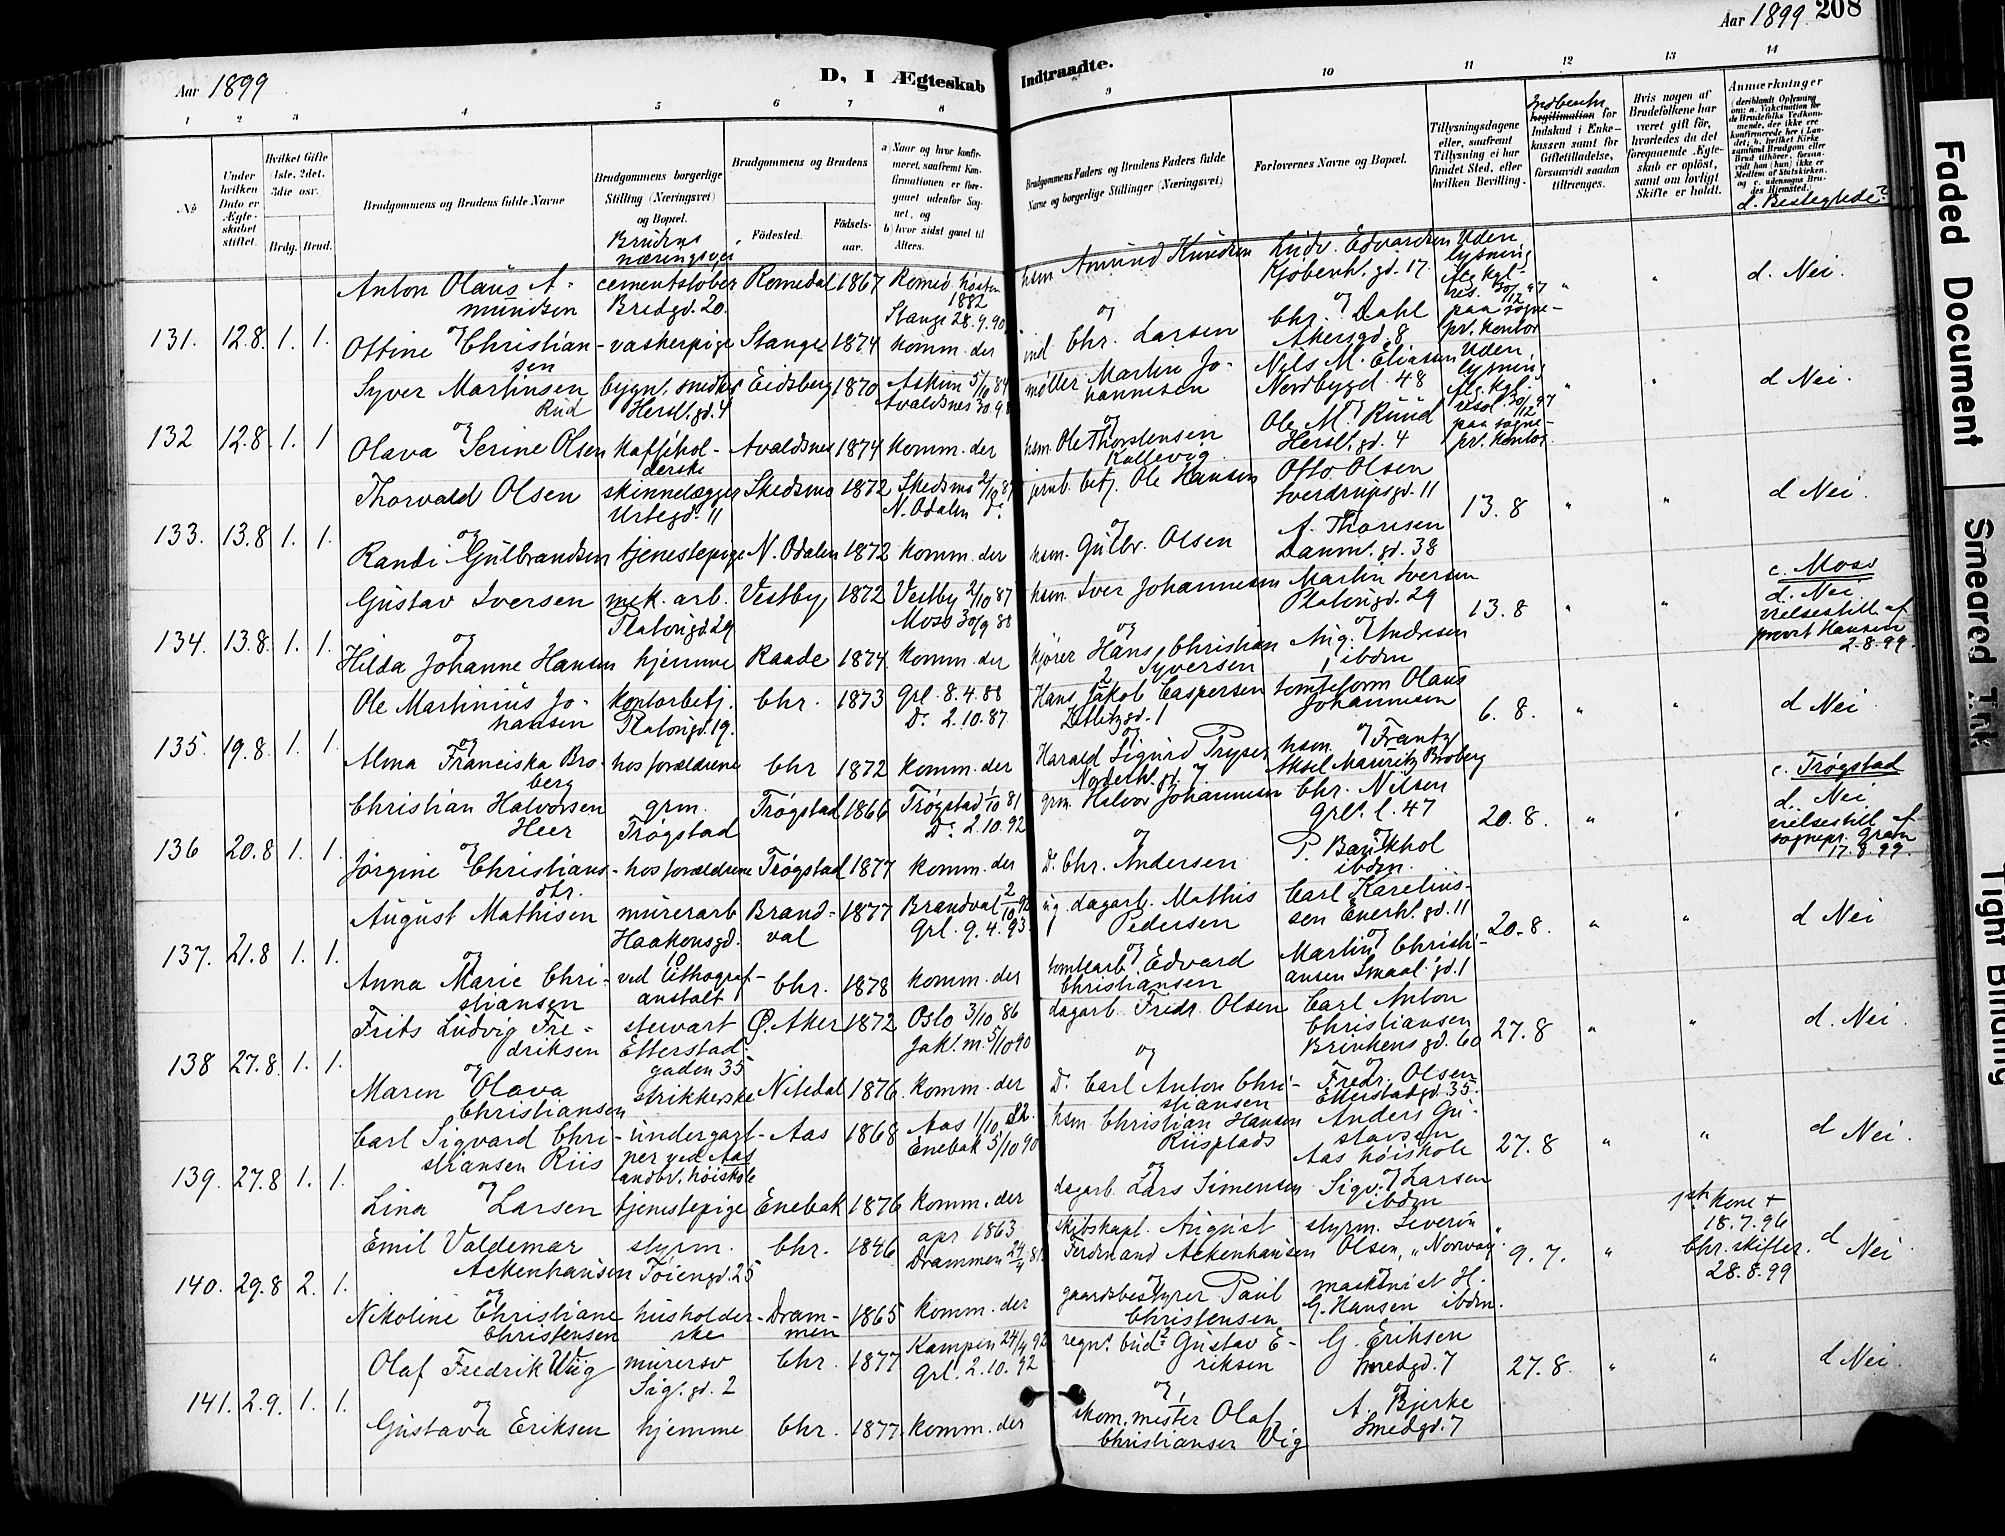 Aar 1899
D, I Ægteskab Indtraadte.
Aar 1899. 208
1 2 3 4 5 6 7 8 9 10 11 12 13 14
№
Under hvilken Dato er Ægteskabet stiftet.
Hvilket Gifte (1ste, 2det, 3die osv.
Brdg. Brud.
Brudgommens og Brudens fulde Navne
Brudgommens borgerlige Stilling (Næringsvei) og Bopæl.
Brudens næringsvei
Brudgommens og Brudens
Fødested.
Fødselsaar.
a) Naar og hvor konfirmeret, saafremt Konfirmationen er foregaaet udenfor Sognet, og
b) hvor sidst gaaet til Alters.
Brudgommens Faders og Brudens Faders fulde Navne og borgerlige Stillinger (Næringsvei)
Forlovernes Navne og Bopæl.
Tillysningsdagene eller, saafremt Tillysning ei har fundet Sted, efter hvilken Bevilling.
Legitimation for Indskud i Enkekassen samt for Giftetilladelse, forsaavidt saadan tiltrænges.
Hvis nogen af Brudefolkene har været gift før, hvorledes da det foregaaende Ægteskab er opløst, samt om lovligt Skifte er holdt.
Anmærkninger
(deriblandt Oplysning om: a. Vakcination for de Brudefolks Vedkommende, der ikke ere konfirmerede her i Landet; b. hvilket Kirkesamfund Brudgom eller Brud tilhører, forsaavidt han (hun) ikke er Medlem af Statskirken, og c. udensogns Brudes Hjemsted.)
d. Beslegtede?
131. 12.8. 1. 1.
Anton Olaus Amundsen cementstøber Bredgd. 20. Romedal 1867 Romed. høsten 1882 Stange 28.9.90
hsm. Amund Knudsen Ludv. Edvardsen Kjøbenh. gd. 17. Uden lysning flg. kgl. res. 30/12 97 paa sognepr. kontor " " d. Nei.
og
Ottine Christiansen vaskerpige Stange 1874 komm. der
ind. Chr. Larsen Chr. Dahl Akersgd. 8
132 12.8. 1. 1
Syver Martinsen Rud bygn. snedker Hersl. gd. 4 Eidsberg 1870 Askim 5/10 84 Avaldsnes 30.9
møller Martin Johannesen Nils M. Eliasen Nordbygd. 48 Uden lysning flg. kgl. resol. 30/12 97 paa sognepr. kontor " " d Nei.
og
Olava Serine Olsen kaffekolderske Avaldsnes 1874 komm. der
hsm. Ole Thorstensen Kallevig Ole M. Ruud Hersl. gd. 4
133. 13.8 1. 1.
Thorvald Olsen skinnelægger Urtegd. 11 Skedsmo 1872 Skedsmo 2/10 87 N. Odalen Do.
jernb. betj. Ole Hansen Otto Olsen Sverdrupsgd. 11 13.8 " " d Nei.
og
Randi Gulbrandsen tjenestepige N. Odalen 1872 komm. der
hsm. Gulbr. Olsen A. Thoresen Danm. gd. 38
134. 13.8. 1. 1.
Gustav Iversen mek. arb. Platousgd. 29 Vestby 1872 Vestby 2/10 87 Moss 30/9 88
hsm. Iver Johannesen Martin Iversen Platousgd. 29 13.8 " " c. Moss d. Nei vielsestill. af provst Hansen 2.8.99.
og
Hilda Johanne Hansen hjemme Raade 1874 komm. der
kjører Hans Christian Syversen Aug. Andresen ibdm
135. 19.8. 1. 1.
Ole Martinius Johansen kontorbetj. Platousgd. 19. Chr. 1873 Grl. 8.4.88 Do. 2.10.87
Hans Jakob Caspersen gd. 1 tomteform Olaus Johannesen 6.8. " " d Nei
og
Alma Franciska Broberg hos forældrene Chr 1872 komm. der
Harald Sigurd Pryser Nordethl. gd. 7 hsm. Frantz Aksel Mauritz Broberg
136 20.8 1. 1.
Christian Halvorsen Heer grm. Trøgstad Trøgstad 1866 Trøgstad 1/10 81 Do. 2.10.92
grm. Halvor Johannesen Chr. Nilsen Grl. l. 47 20.8. " " c. Trøgstad d. Nei vielsestill. af sognepr. Gram 17.8.99.
og
Jørgine Christiansdtr. hos forældrene Trøgstad 1877 komm. der
Do. Chr. Andersen P. Baukhol ibdm.
137. 21.8 1. 1.
August Mathisen murerarb Haakonsgd. 10 Brandval 1877 Brandval 2/10 92 Grl. 9.4.93
dagarb. Mathis Pedersen Carl Kareliussen Enerhl. gd. 11 20.8. " " d Nei
og
Anna Marie Christiansen ved lithografanstalt Chr. 1878 komm. der
tomtearb. Edvard Christiansen Martin Christiansen Smaal. gd. 1
138 27.8. 1. 1.
Frits Ludvig Fredriksen stewart Etterstadgaden 35 Ø. Aker 1872 Oslo 3/10 86 Jak. m. 5/10 90
dagarb. Fredr. Olsen Carl Anton Christiansen Brinkens gd. 60 27.8 " " d. Nei.
og
Maren Olava Christiansen strikkerske Nitedal 1876. komm. der
Do. Carl Anton Christiansen Fredr. Olsen Etterstadgd. 35.
139. 27.8 1. 1.
Carl Sigvard Christiansen Riis undergartner ved Aas landbr. høiskole Aas 1868 Aas 1/10 82. Enebak 5/10 90
hsm. Christian Hansen Riisplads Anders Gustavsen Aas høiskole 27.8 " " d Nei.
og
Lina Larsen tjenestepige Enebak 1876 komm. der
dagarb. Lars Simensen Sigv. Larsen ibdm
140. 29.8 2. 1.
Emil Valdemar Ackenhausen styrm. Tøiengd. 25 Chr. 1846 apr. 1863 Drammen 24/4 81
skibskapt. August Ferdinand Ackenhausen styrm. Severin Olsen, "Norway". 9.7. " 1ste kone + 18.7.96 Chr. skifter. 28.8.99 d Nei.
og
Nikoline Christiane Christensen husholderske Drammen 1865 komm. der
gaardsbestyrer Paul Christensen maskinist H. G. Hansen ibdm.
141. 2.9. 1. 1.
Olaf Fredrik Wiig murersv Sig. gd. 2 Chr. 1877 Kampen 24/4 92 Grl. 2.10.92
regn. bud Gustav Eriksen G. Eriksen Smedgd. 7 27.8. " " d Nei.
og
Gustava Eriksen hjemme Chr. 1877. komm. der
skom. mester Olaf Christiansen Vig A. Bjerke Smedgd. 7
Faded Document
Smeared Ink.
Tight Binding